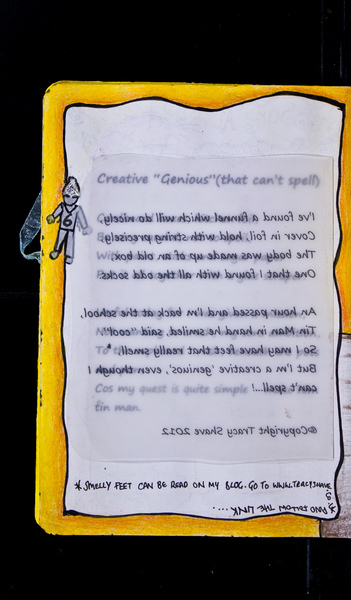 Creative "Genious"(that can't spell)
I've found a funnel which will do nicely,
Cover in foil, hold with string precisely,
The body was made up of an old box,
One that I found with all the odd socks.
An hour passed and I'm back at the school,
Tin Man in hand he smiled, said "cool"
So I may have feet that really smell, *
But I'm a creative 'genious', even though I
can't spell...!
Cos my quest is quite simple
tin man.
©Copyright Tracy Shave 2012
* SMELLY FEET CAN BE READ ON MY BLOG. GO TO WWW.TRACYSHAVE.CO
* AND FOLLOW THE LINK....